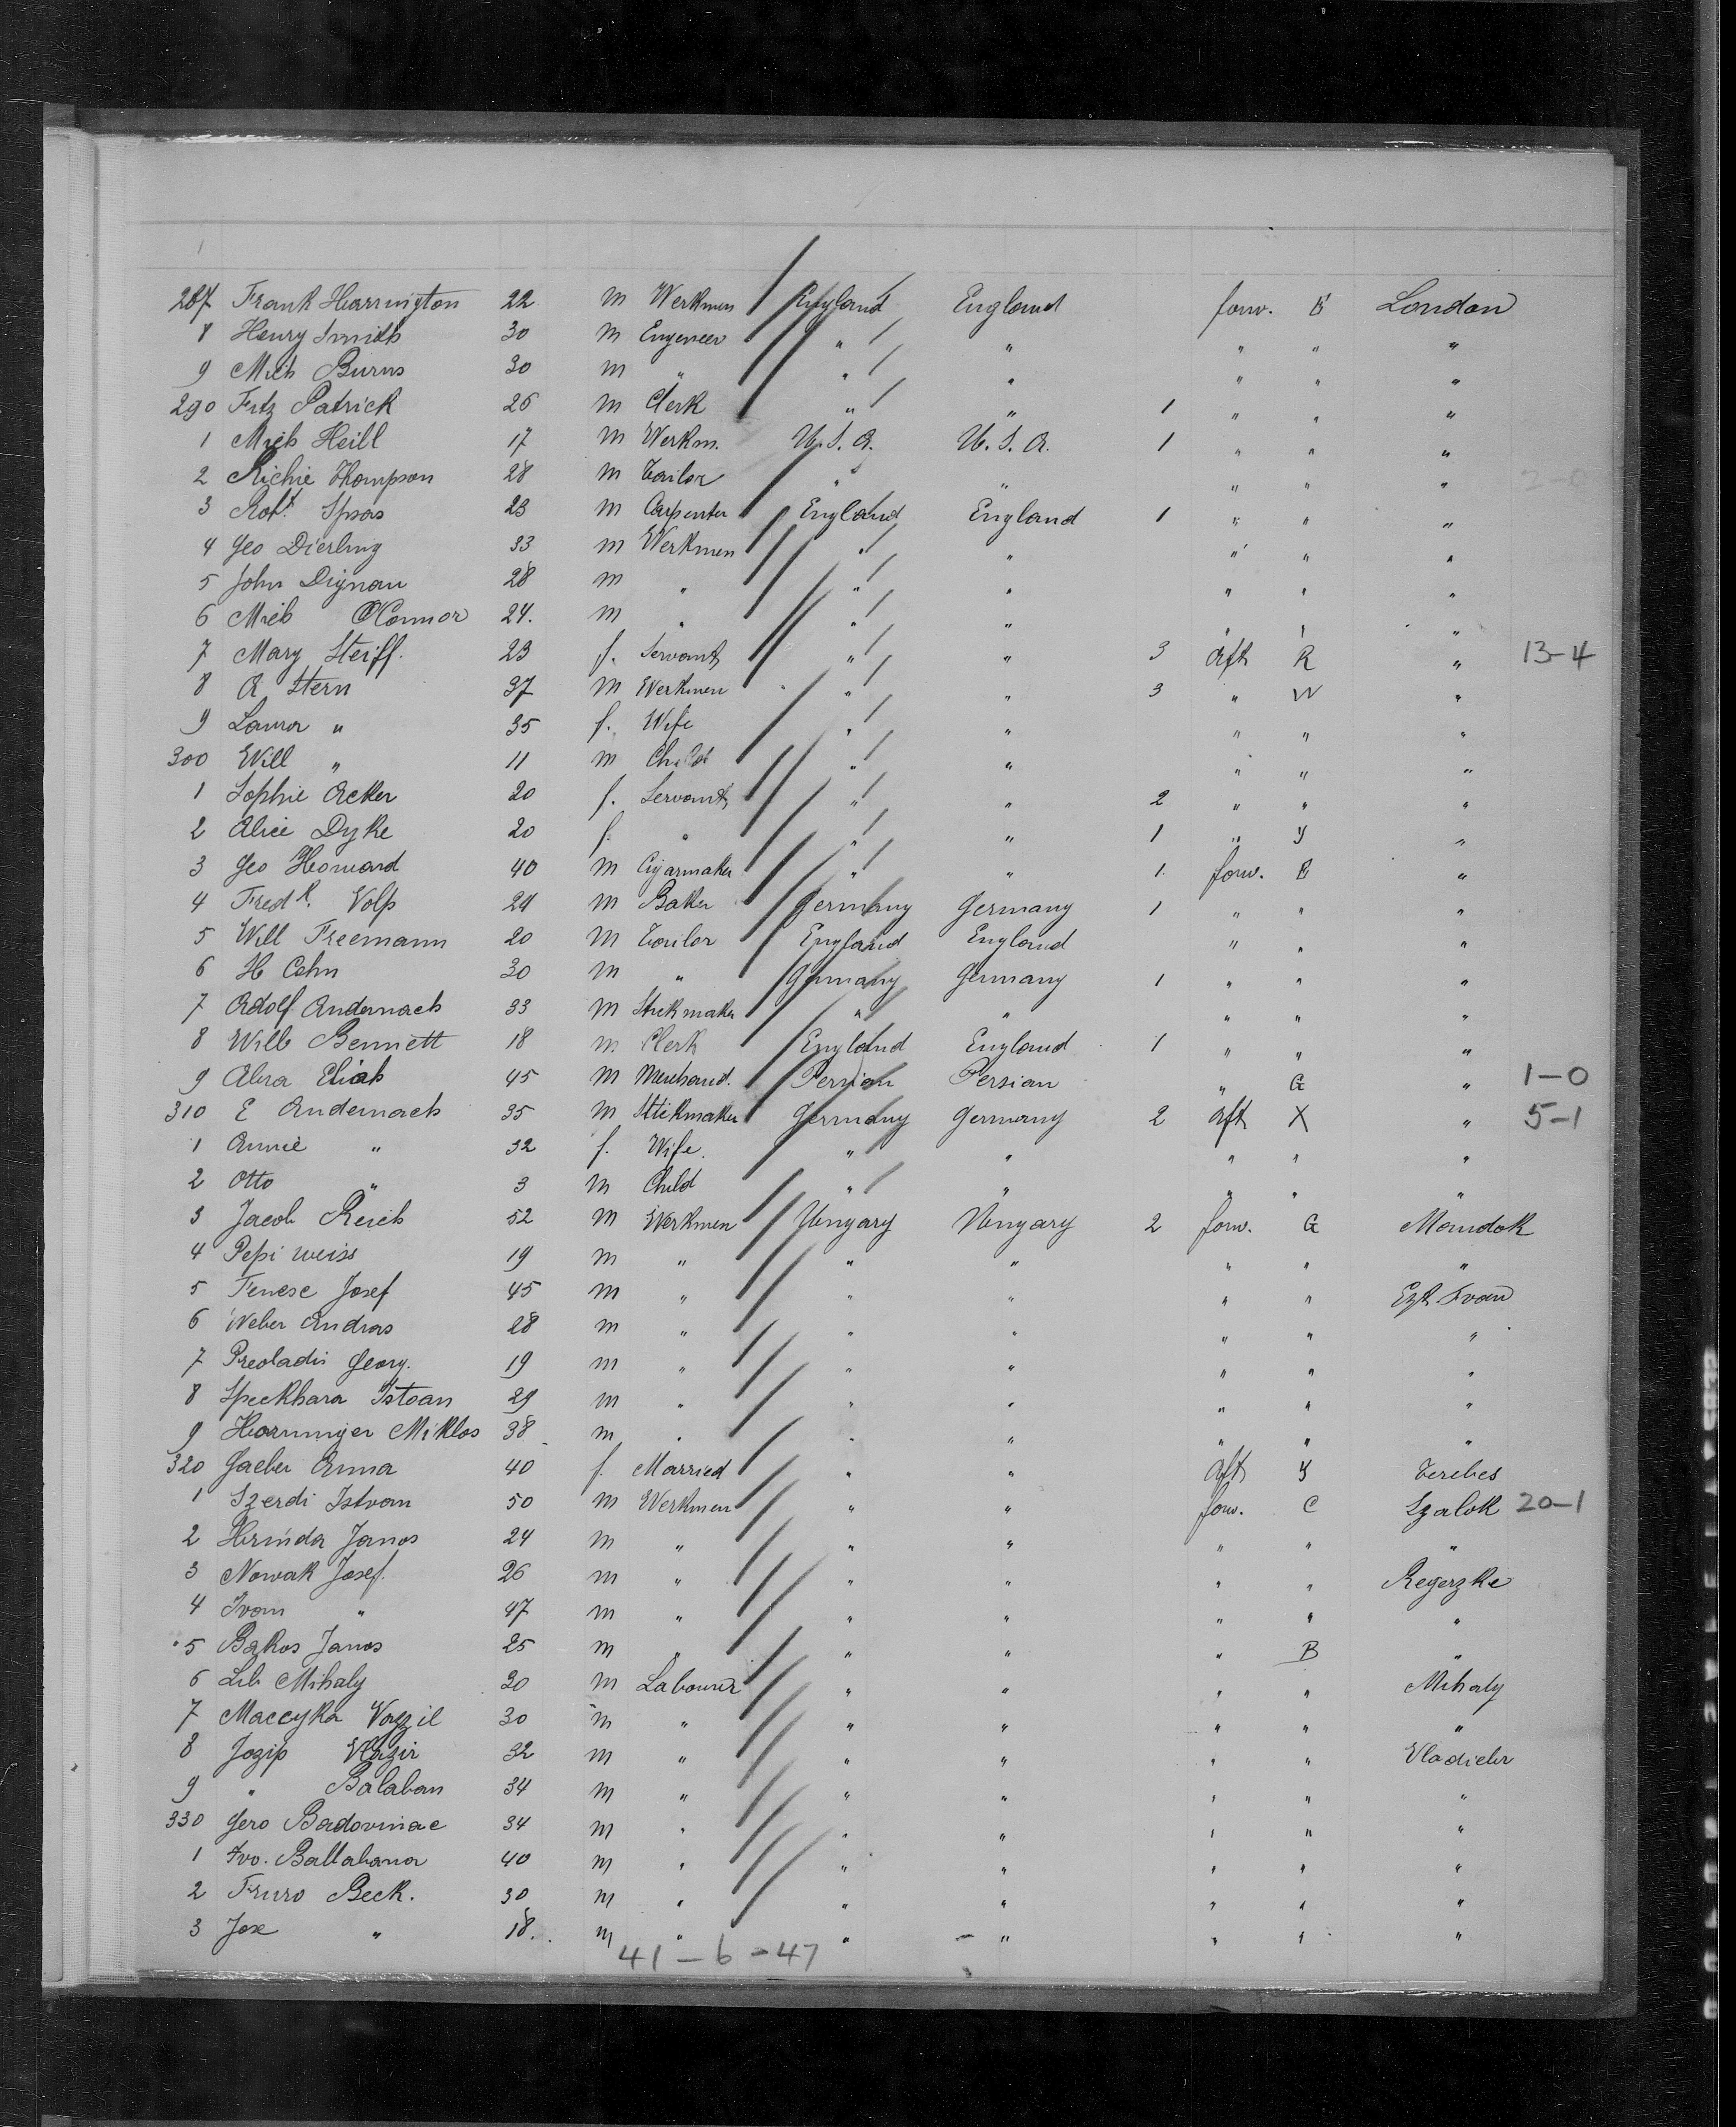 287 Frank Harrington 22 m Werkmen England England forw. B London
8 Henry Smith 30 m Engeneer " " " " "
9 Mich Burns 30 m " " " " " "
290 Fitz Patrick 26 m Clerk " " 1 " " "
1 Mich Heill 17 m Werkm. U.S.A. U.S.A. 1 " " "
2 Richie Thompson 28 m Tailor " " " " " 2-0
3 Robt. 23 m Carpenter England England 1 " " "
4 Geo Dierling 33 m Werkmen " " " " "
5 John Dignan 28 m " " " " " "
6 Mich O'Connor 24. m " " " " " "
7 Mary Steiff. 23 f. Servant " " 3 aft R " 13-4
8 A Stern 37 m Werkmen " " 3 " W "
9 Laura " 35 f. Wife " " " " "
300 Will " 11 m Child " " " " "
1 Sophie Acker 20 f. Servant " " 2 " " "
2 Alice Dyke 20 f. " " " 1 " Y "
3 Geo Howard 40 m Cigarmaker " " 1. forw. B "
4 Fredk. Volp 24 m Baker Germany Germany 1 " " "
5 Will Freemann 20 m Tailor England England " " "
6 H Cohn 30 m " Germany Germany 1 " " "
7 Adolf Andernach 33 m Stickmaker " " " " "
8 Will Bennett 18 m. Clerk England England 1 " " "
9 Abra Eliah 45 m Merchand. Persian Persian " G " 1-0
310 E Andernach 35 m Stickmaker Germany Germany 2 aft X " 5-1
1 Annie " 32 f. Wife. " " " " "
2 Otto " 3 m Child " " " " "
3 Jacob Reich 52 m Werkmen Ungary Ungary 2 forw. G Mandok
4 Pepi Weiss 19 m " " " " " "
5 Fenese Josef 45 m " " " " " Ivan
6 Weber Andras 28 m " " " " " "
7 Georg. 19 m " " " " " "
8 Istoan 29 m " " " " " "
9 Miklos 38 m " " " " " "
320 Anna 40 f. Married " " aft Y Terebes
1 Szerdi Istvan 50 m Werkmen " " forw. C Szalok 20-1
2 Hrinda Janos 24 m " " " " " "
3 Nowak Josef 26 m " " " " " Regerzke
4 Ivan " 47 m " " " " " "
5 Bakos Janos 25 m " " " " B "
6 Lib Mihaly 30 m Labourer " " " " Mihaly
7 Maccyka 30 m " " " " " "
8 Jozip 32 m " " " " "
9 " Balaban 34 m " " " " " "
330 Jero Badovinac 34 m " " " " " "
1 Ivo. Ballabana 40 m " " " " " "
2 Fruro Beck. 30 m " " " " " "
3 Jose " 18. m " " " " " "
41-6-47